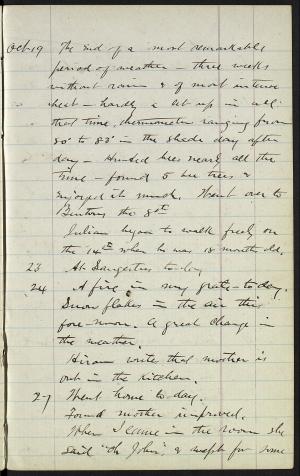 Oct 19 The end of a most remarkable
period of weather — three weeks
without rain & of most intense
heat — hardly a let up in all
that time, thermometer ranging from
80° to 88° in the shade day after
day — Hunted bees nearly all the
time — found 5 bee trees &
enjoyed it much. Went over to
the 8th
Julian began to walk freely on
the 14th when he was 18 months old.
23 At Saugerties to-day
24 A fire in my grate to-day.
Snow flakes in the air this
fore-noon. A great change in
the weather.
Hiram writes that mother is
out in the kitchen.
27 Went home to-day.
Found mother improved.
When I came in the room she
said "Oh John", & wept for some